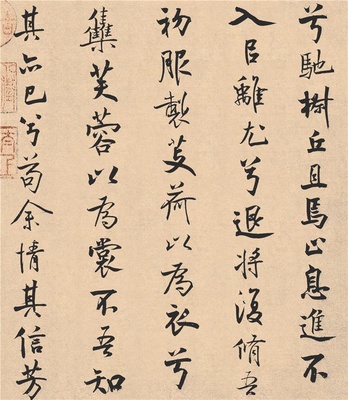 兮馳椒丘且焉止息進不
入以離尤兮退將復脩吾
初服製芰荷以為衣兮
集芙蓉以為裳不吾知
其亦已兮苟余情其信芳